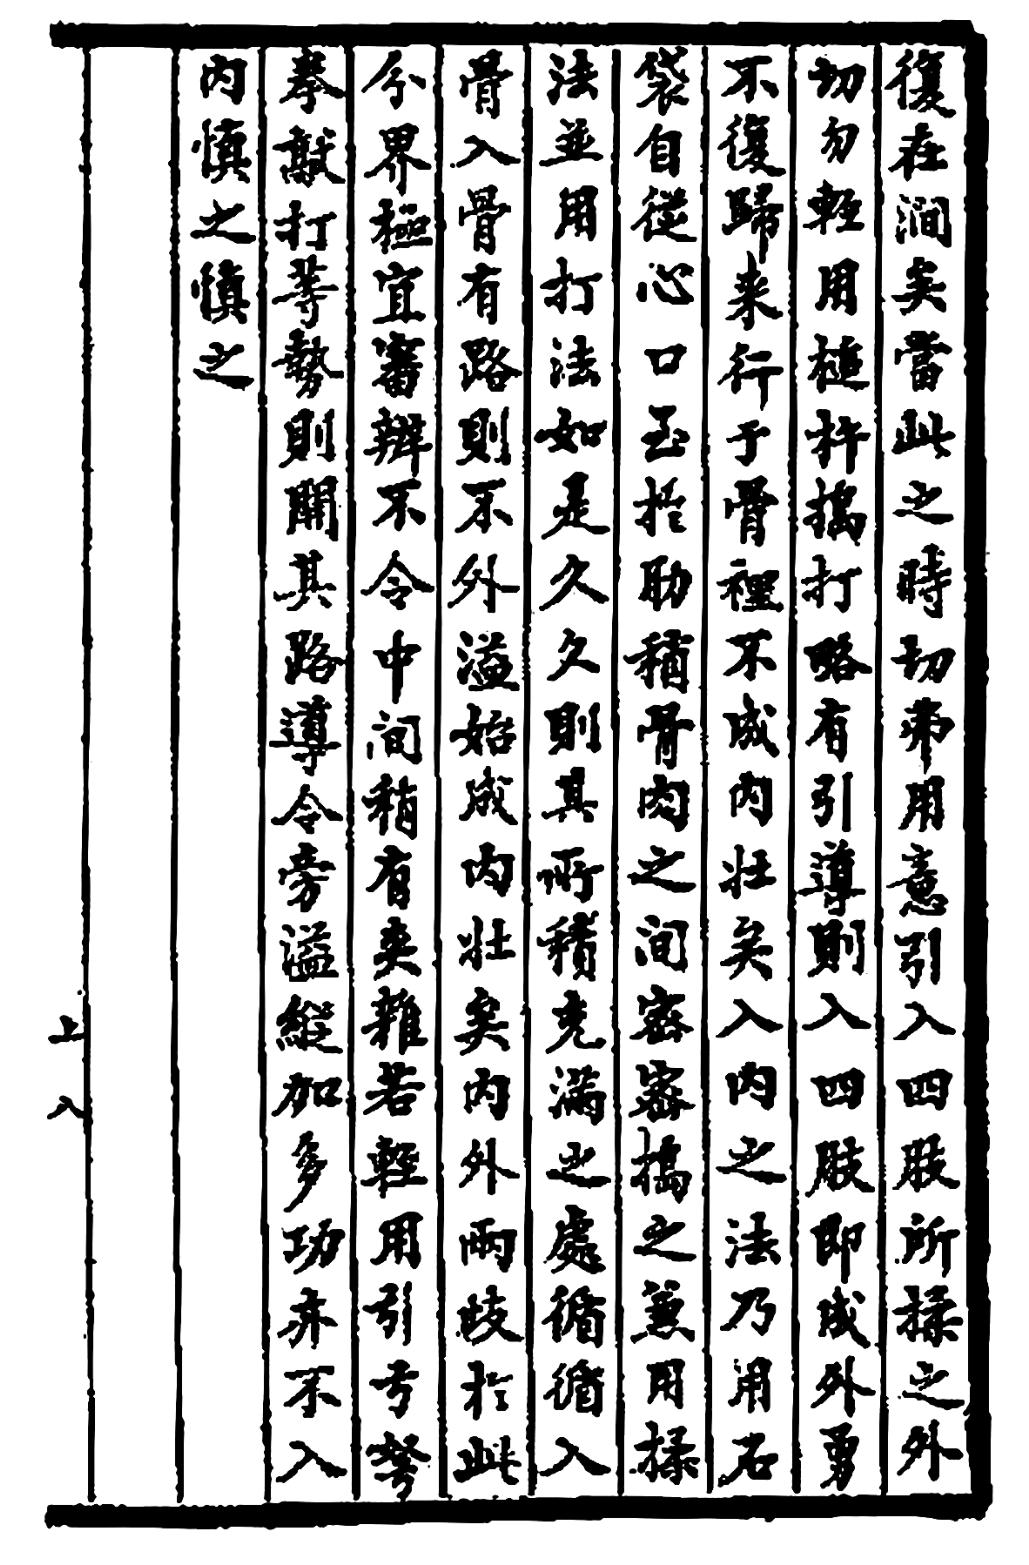 復在澗矣當此之時切弗用意引入四肢所揉之外
切勿輕用槌杵搗打略有引導則入四肢即成外勇
不復歸来行于骨裡不成内壯矣入内之法乃用石
袋自從心口至於肋稍骨肉之间密密搗之兼用揉
法並用打法如是久久則其所積充滿之處循循入
骨入骨有路則不外溢始成内壯矣内外兩歧於此
分界極宜審辨不令中间稍有夹雜若輕用引弓弩
拳獻打等勢則開其路導令旁溢縱加多功亦不入
内慎之慎之
上 八